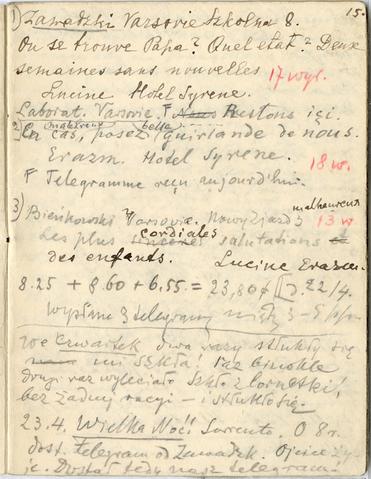 15.
1) Zawadzki Varsovie Szkolna 8.
Ou se trouve Papa? Quel état? Deux
semaines sans nouvelles 17 wyr.
Lucine Hotel Syrene.
Laborat. Varsovie. F Nous Restons içi.
malheureux belle
2) En cas, posez guirlande de nous.
Erazm. Hotel Syrene.
18 w.
F Telegramme reçu aujourd'hui.
malheureux
3) Bieńkowski Varsovie. Nowy Zjazd 5 13 w
cordiales
Les plus sincères salutations et
des enfants. Lucine Erazm.
8.25 + 8.60 + 6.55 = 23,80 22/4.
Wysłane 3 telegramy między 3-5 pp.
We czwartek dwa razy stłukły się
mi szkła! raz binokle
drugi raz wyleciało szkło z lornetki,
bez żadnej racyi – i stłukło się.
23.4. Wielka Noc! Sorrento. O 8 r.
dost. telegram od Zawadzk. Ojciec ży-
je. Dostał tedy nasz telegram